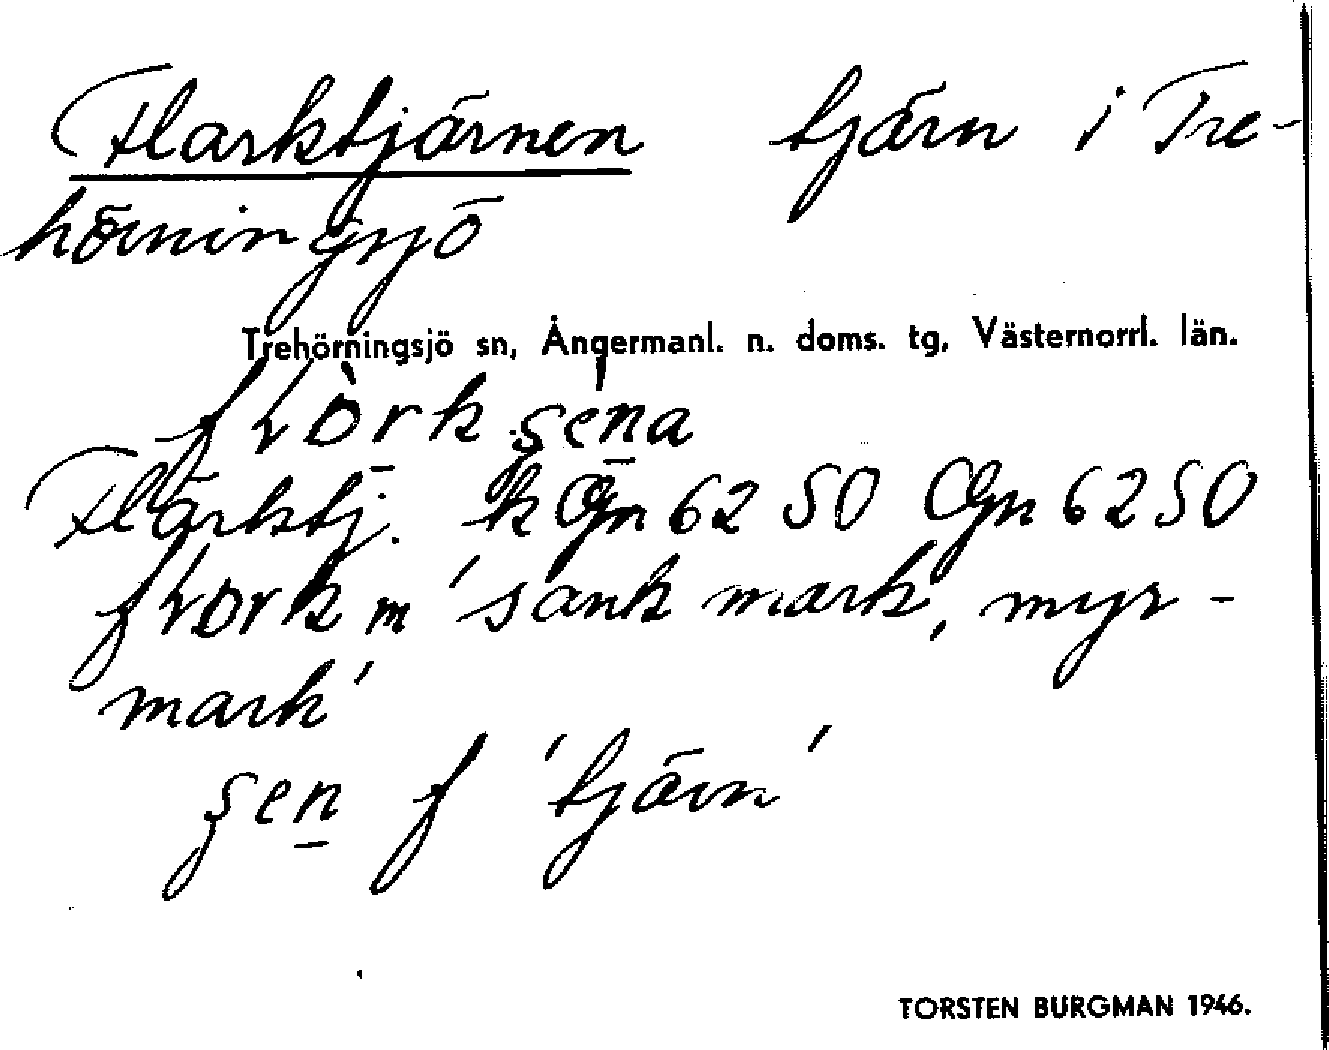 Flarktjärnen tjärn i Tre-
hörningsjö
Trehörningsjö sn, Ångermanl. n. doms. tg, Västernorrl. län.
Flärktj. k Ogn 62 50 Ogn 62 50
m 'sank mark, myr-
mark'
f 'tjärn'
TORSTEN BURGMAN 1946.